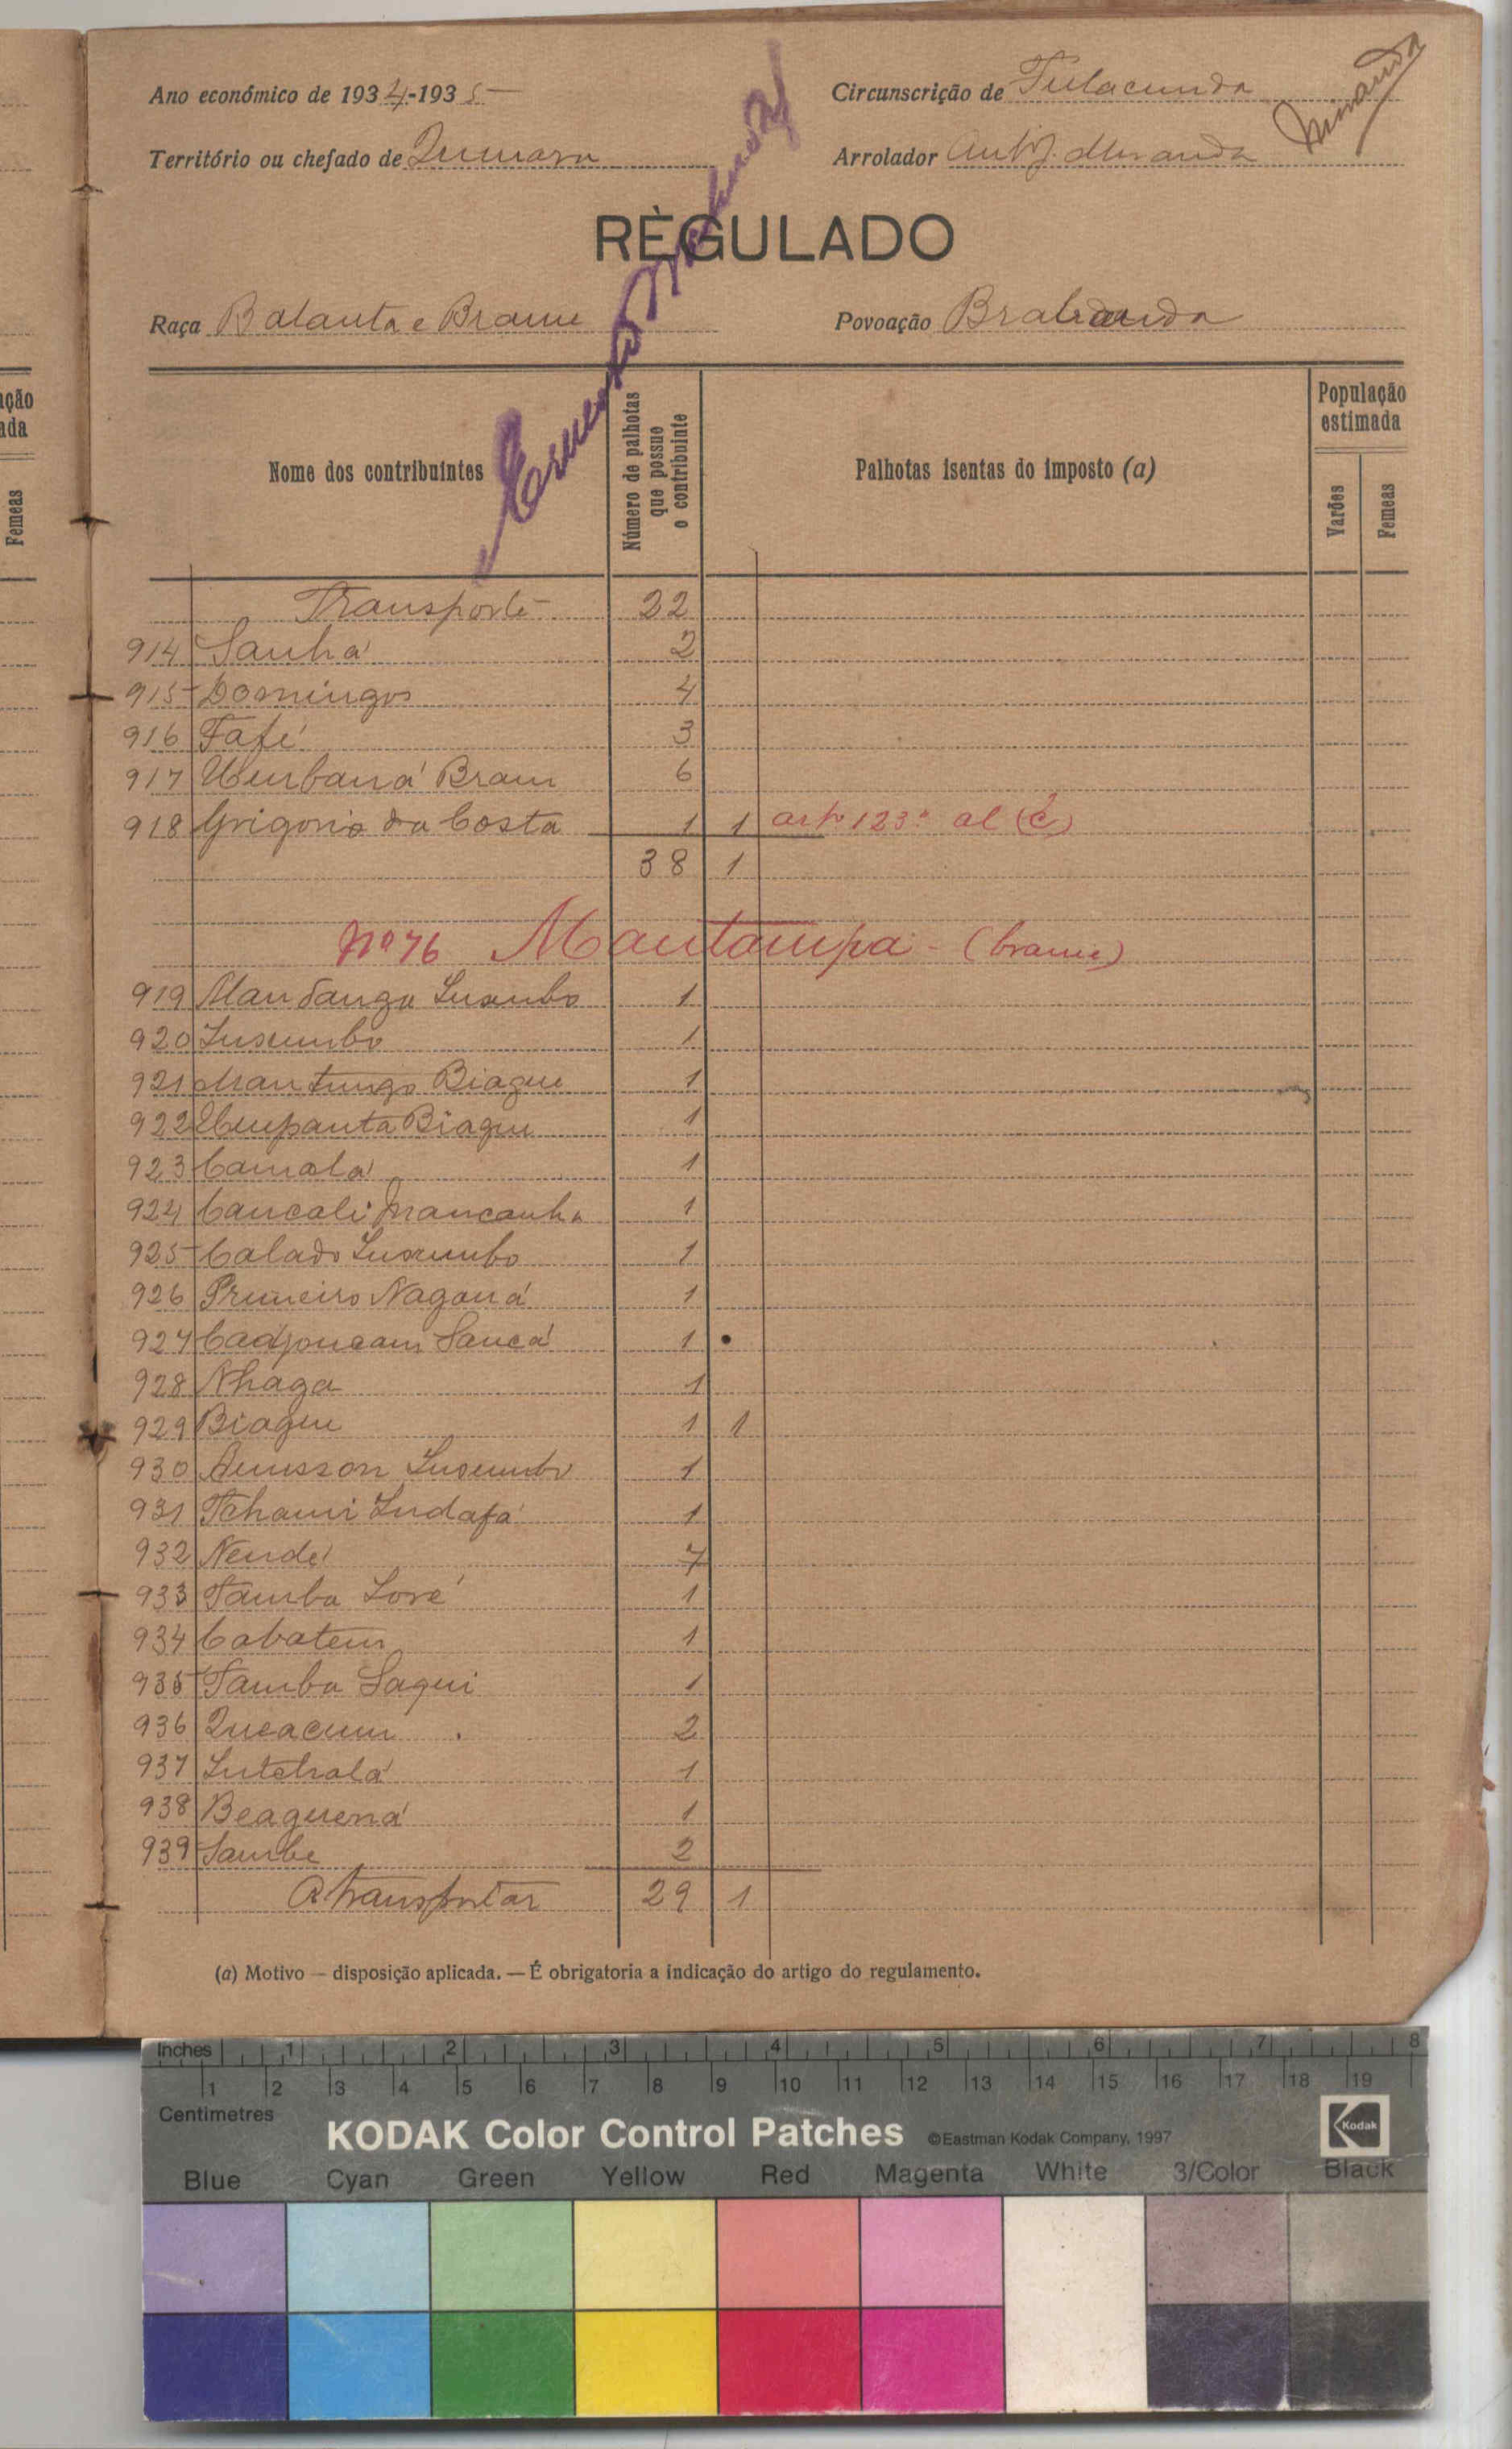 Ano económico de 1934-1935
Circunscrição de Fulacunda
Miranda
Território ou chefado de Quinara
Arrolador Ant.º J. Miranda
RÈGULADO
Raça Balanta e Brame
Povoação
Nome dos contribuintes
Número de palhotas que possue o contribuinte
Palhotas isentas do imposto (a)
População estimada
Varões
Femeas
Transporte 22
914 Sanhá 2
915 Domingos 4
916 Fafé 3
917 Umbaná Bram 6
918 Grigorio da Costa 1 1 artº 123º al (c)
38 1
Nº 76 Mantampa - (brame)
919 Mandanga 1
920 1
921 Mantungo Biague 1
922 Umpanta Biague 1
923 Camala 1
924 Cancali Mancanha 1
925 Calado 1
926 Primeiro Naganá 1
927 Sancá 1
928 Nhaga 1
929 Biague 1 1
930 1
931 Tchami Indafá 1
932 Nendé 7
933 Tamba 1
934 Cabatem 1
935 Tamba Sagui 1
936 Queacum 2
937 Intchalá 1
938 Beaguená 1
939 Sambe 2
A transportar 29 1
(a) Motivo — disposição aplicada. — É obrigatoria a indicação do artigo do regulamento.
ação
ada
Femeas
Inches 1 2 3 4 5 6 7 8
1 2 3 4 5 6 7 8 9 10 11 12 13 14 15 16 17 18 19
Centimetres
KODAK Color Control Patches ©Eastman Kodak Company, 1997 Kodak
Blue Cyan Green Yellow Red Magenta White 3/Color Black